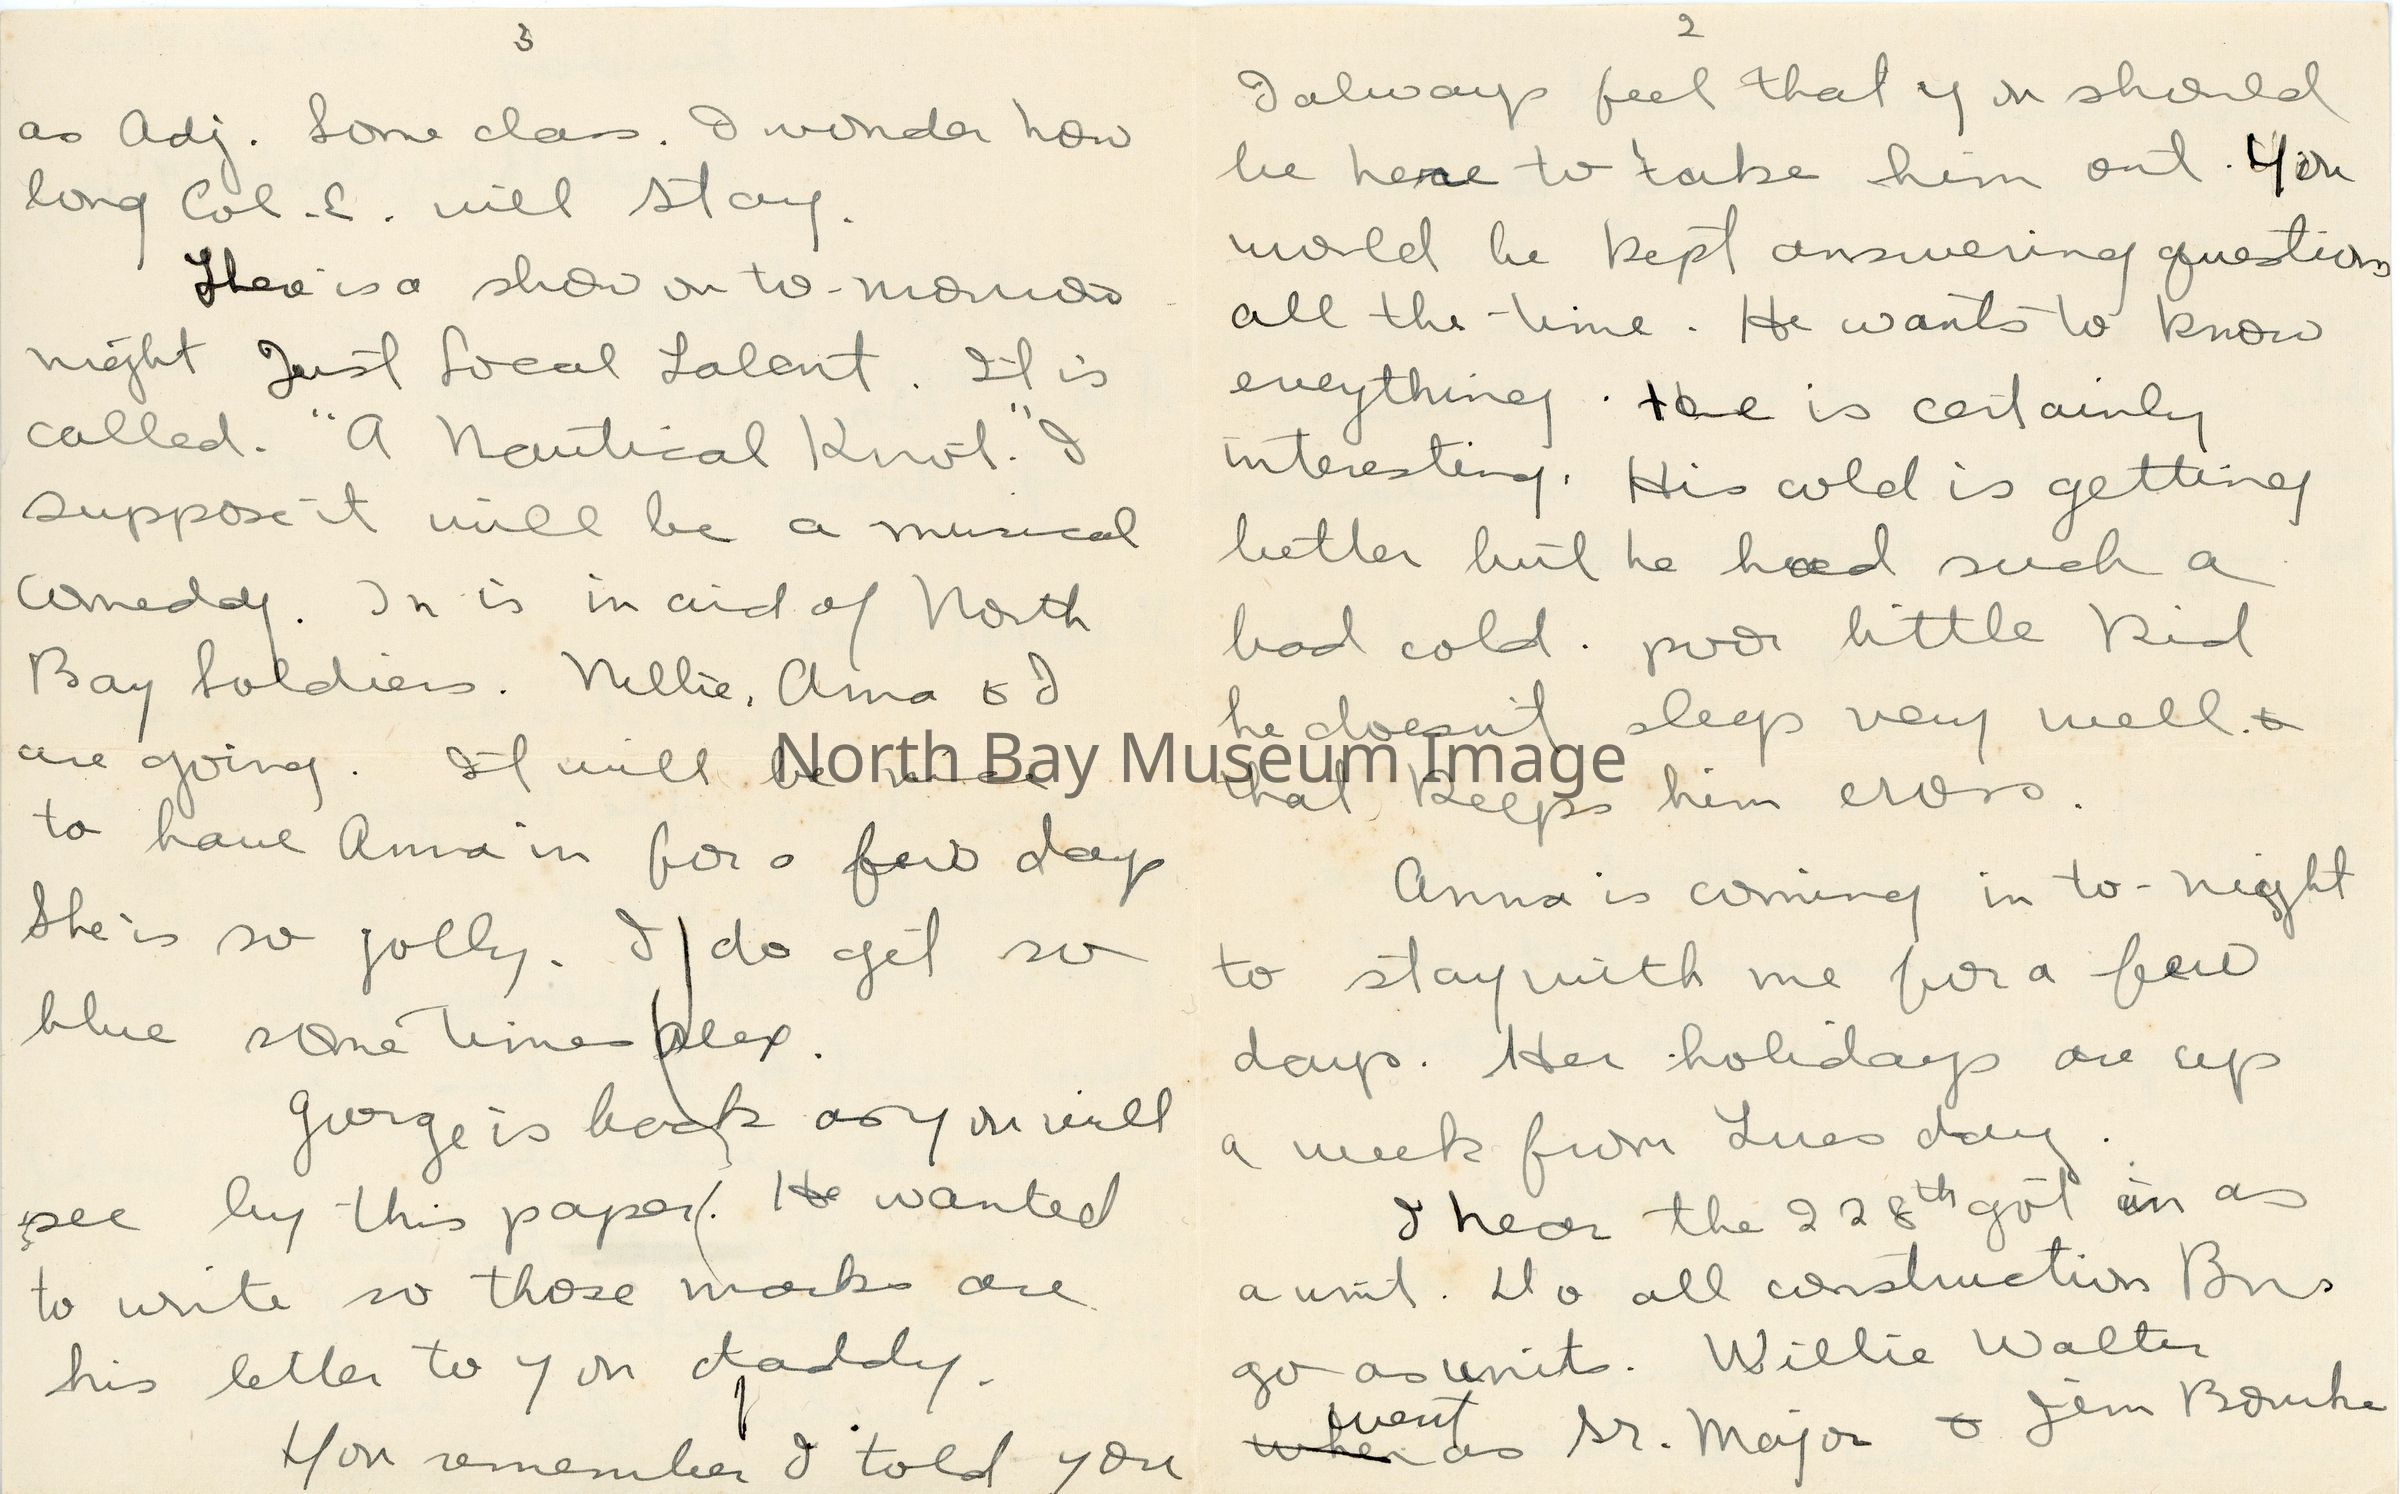 3
as Adj. Some class. I wonder how
long Col. E. will stay.
There is a show on to-morrow
night Just Local Talent. It is
called. "A Nautical Knot." I
suppose it will be a musical
comedy. In is in aid of North
Bay Soldiers. Nellie, Anna & I
are going. It will be nice
to have Anna in for a few days
She is so jolly. I do get so
blue sometimes Alex.
George is back as you will
see by this paper. He wanted
to write so those marks are
his letter to you daddy.
You remember I told you
2
I always feel that you should
be here to take him out. You
would be kept answering questions
all the time. He wants to know
everything. He is certainly
interesting. His cold is getting
better but he had such a
bad cold. poor little kid
he doesn't sleep very well. &
that keeps him cross.
Anna is coming in to-night
to stay with me for a few
days. Her holidays are up
a week from Tuesday.
I hear the 228th got in as
a unit. Do all construction Bns
go as units. Willie Walter
went
when as Sr. Major & Jem Bourke
North Bay Museum Image